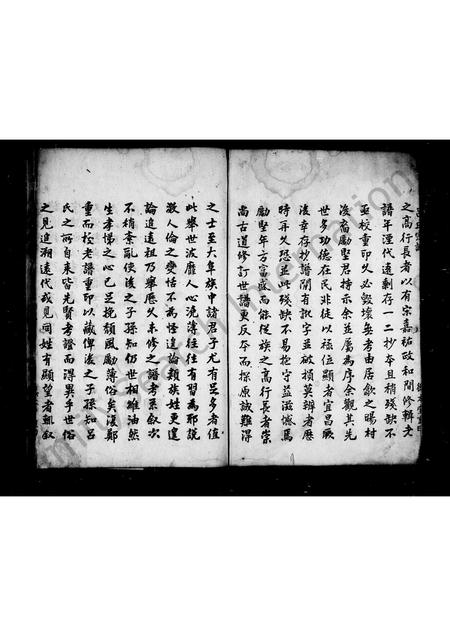 之高行長者以有宗嘉祐政和間修輯支
譜年湮代遠剩存一二抄本且稍殘缺不
亟校重印久必毀壞矣考由居歙之暘村
後裔勵堅君持示余並屬為序余觀其先
世名功德在民非徒以祿位顯者宜昌厥
後幸存抄譜間有訛字並破損莫辨者歷
時再久恐並此殘缺不易抱守益滋懼焉
勵堅年方富盛而能從族之高行長者崇
尚古道修訂世譜更反本而探原誠難得
之士至大阜族中諸君子尤有足多者值
此舉世波靡人心澆薄往往有習為邪說
敬人倫之變恬不為怪遑論類族姓更遑
論追遠祖乃舉歷久未修之譜考系敘次
不稍紊亂使後之子孫知仍世相維油然
生孝悌之心已足挽頹風勵薄俗今復鄭
重而校老譜重印以藏俾後之子孫知呂
氏之所自來皆先賢考證而得異乎世俗
之見追溯遠代或見同姓有顯望者輒敘
FamilySearch International